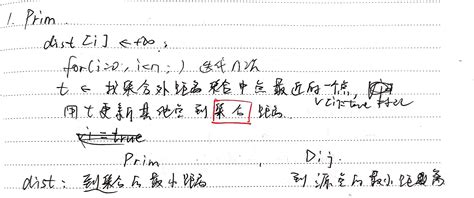 1. Prim
dist[i] ← +∞;
for(i=0; i<n; ) 迭代n次
t ← 找集合外距离集合中点最近的一个点,
用t更新其他点到集合距离
Prim Dij.
dist: 到集合的最小距离 到源点的最小距离